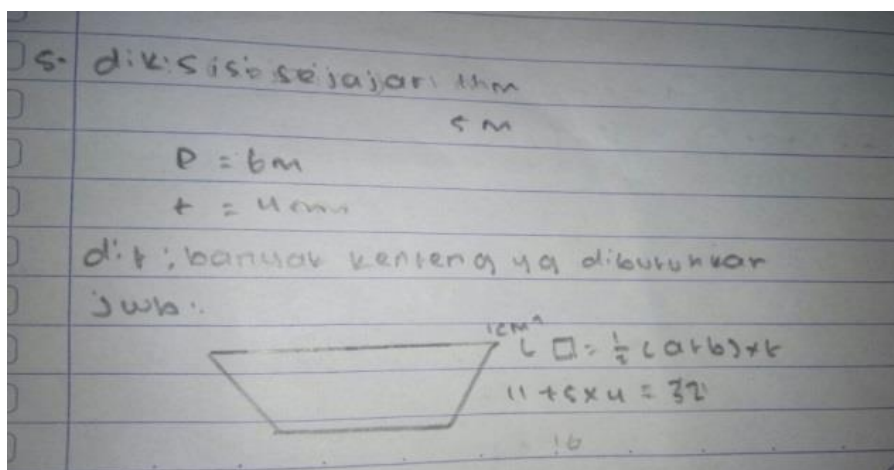 5. dik: sisi sejajar: 11m
5 m
P = 6m
t = 4 cm
dit: banyak kenteng yg dibutuhkan
jwb:
1cm²
L □ = 1/2 (a+b) x t
11 + 5 x 4 = 32
16